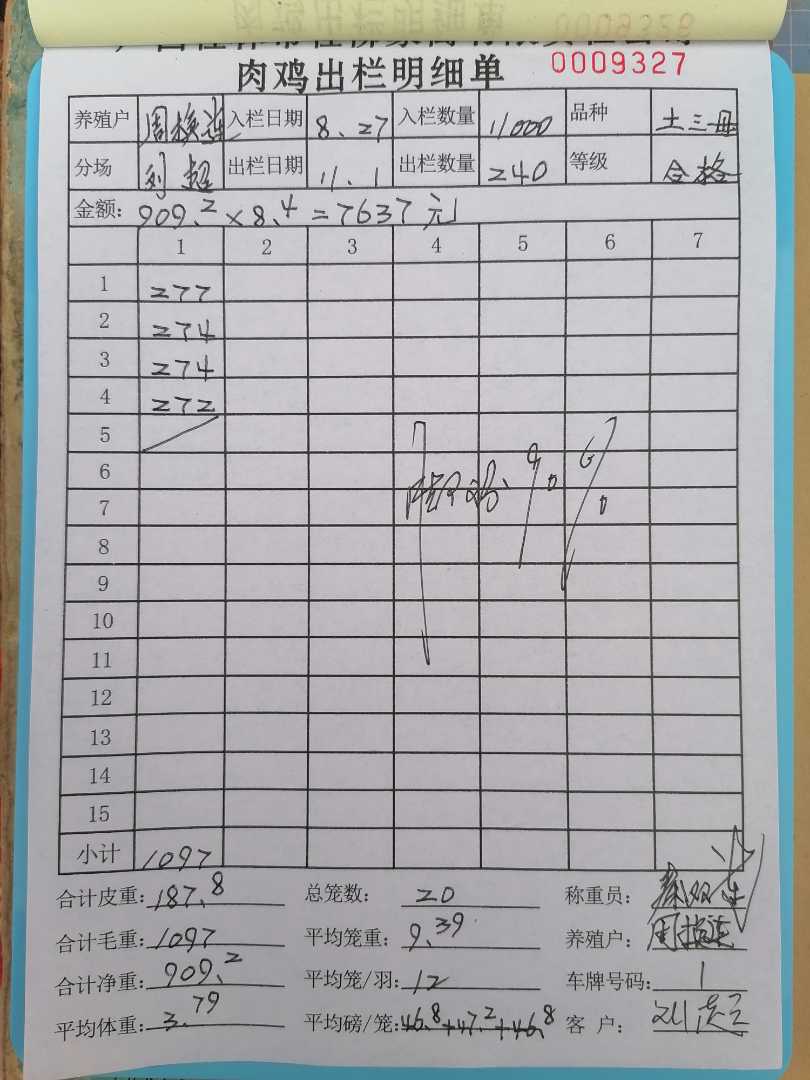 肉鸡出栏明细单 0009327
养殖户 周换连 入栏日期 8.27 入栏数量 11000 品种 土三母
分场 刘超 出栏日期 11.1 出栏数量 240 等级 合格
金额: 909.2×8.4=7637元
1 2 3 4 5 6 7
1 277
2 274
3 274
4 272
5
6
7
8
9
10
11
12
13
14
15
小计 1097
合计皮重: 187.8 总笼数: 20 称重员:
合计毛重: 1097 平均笼重: 9.39 养殖户: 周换连
合计净重: 909.2 平均笼/羽: 12 车牌号码: 1
平均体重: 3.79 平均磅/笼: 46.8+47.2+46.8 客户: